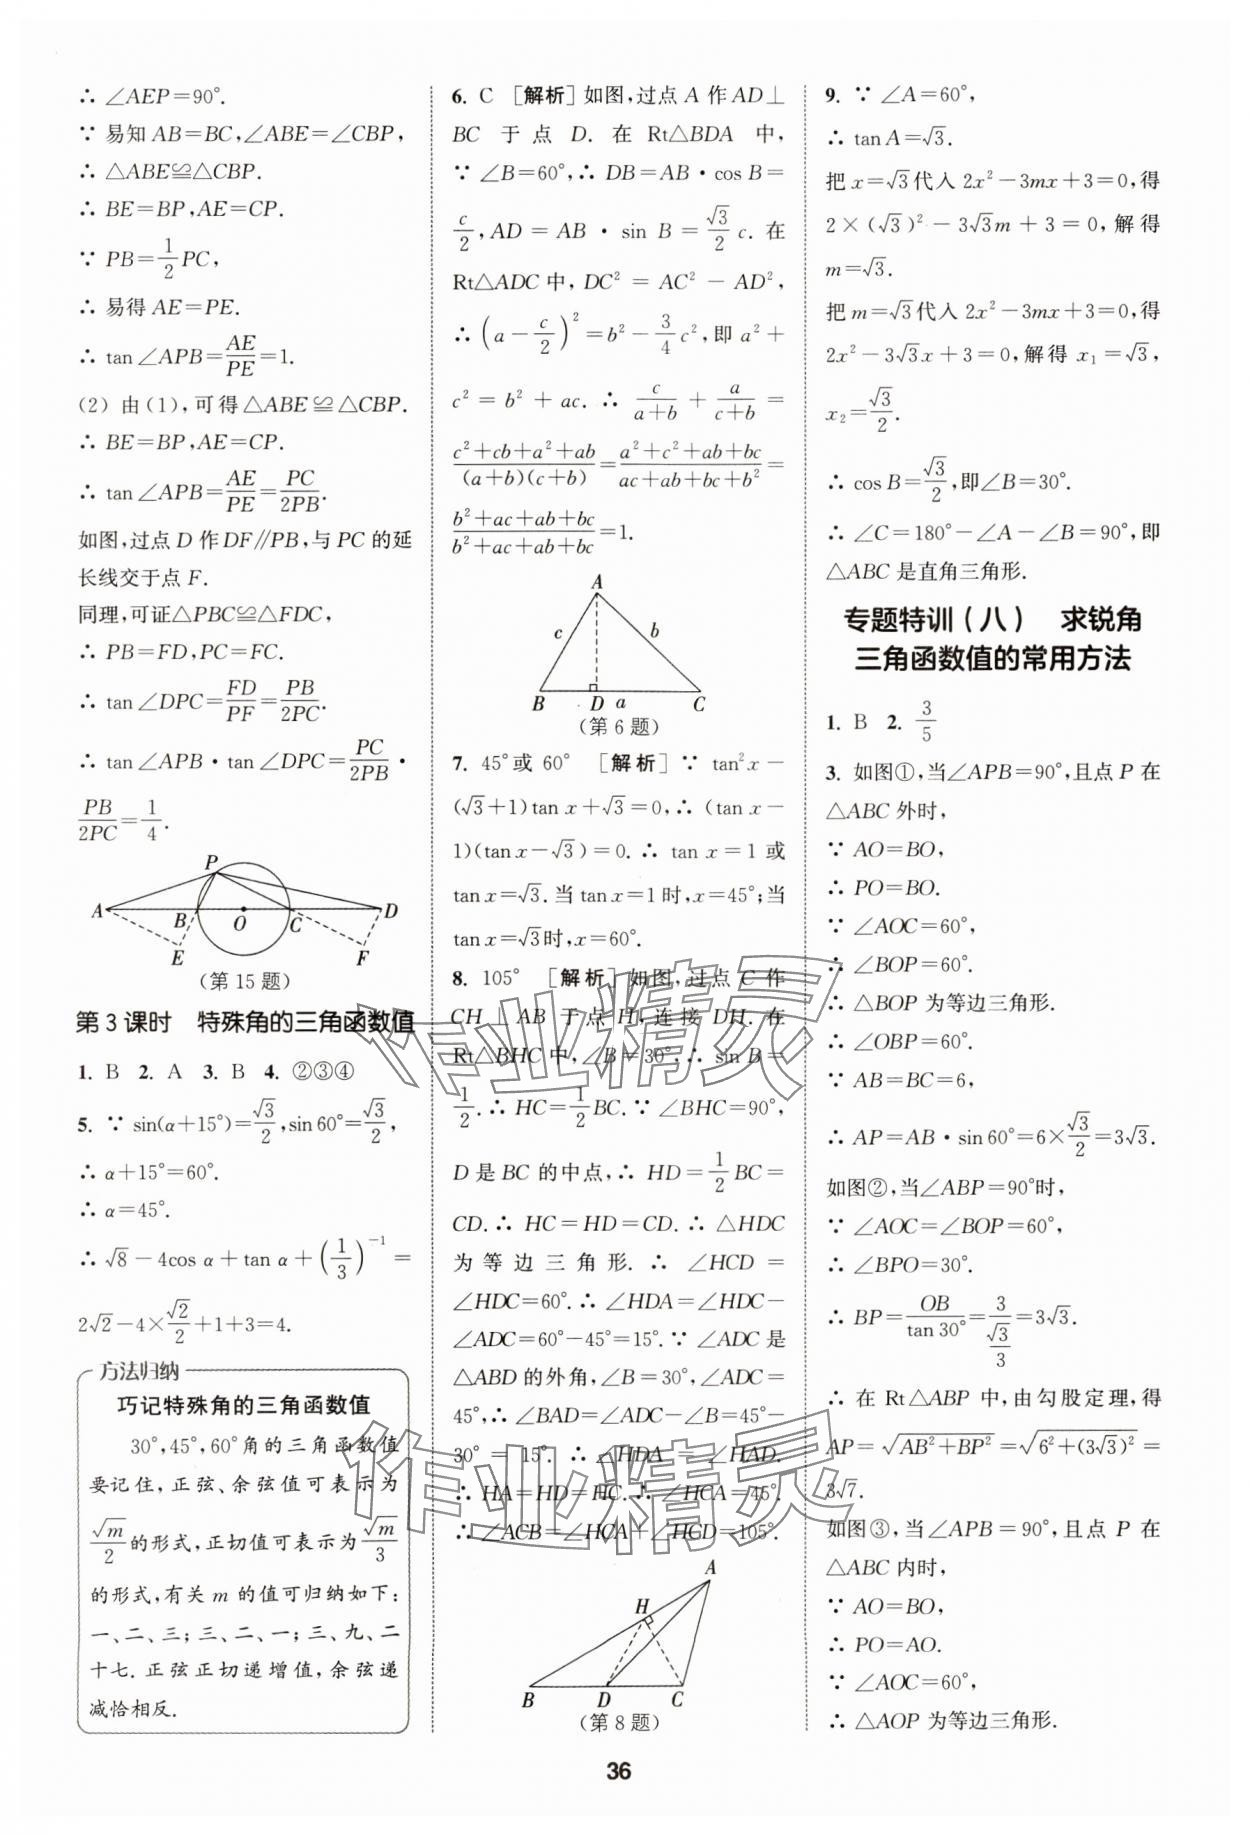 ∴ ∠AEP=90°.
∵ 易知 AB=BC,∠ABE=∠CBP,
∴ △ABE≌△CBP.
∴ BE=BP,AE=CP.
∵ PB=\frac{1}{2}PC,
∴ 易得 AE=PE.
∴ tan∠APB=\frac{AE}{PE}=1.
(2) 由(1),可得△ABE≌△CBP.
∴ BE=BP,AE=CP.
∴ tan∠APB=\frac{AE}{PE}=\frac{PC}{2PB}.
如图,过点 D 作 DF∥PB,与 PC 的延
长线交于点 F.
同理,可证△PBC≌△FDC,
∴ PB=FD,PC=FC.
∴ tan∠DPC=\frac{FD}{PF}=\frac{PB}{2PC}.
∴ tan∠APB·tan∠DPC=\frac{PC}{2PB}·
\frac{PB}{2PC}=\frac{1}{4}.
P
A B O C D
E F
(第 15 题)
第 3 课时 特殊角的三角函数值
1. B 2. A 3. B 4. ②③④
5. ∵ sin(α+15°)=\frac{√3}{2},sin 60°=\frac{√3}{2},
∴ α+15°=60°.
∴ α=45°.
∴ √8-4cos α+tan α+(\frac{1}{3})^{-1}=
2√2-4×\frac{√2}{2}+1+3=4.
方法归纳
巧记特殊角的三角函数值
30°,45°,60°角的三角函数值
要记住,正弦、余弦值可表示为
\frac{√m}{2}的形式,正切值可表示为\frac{√m}{3}
的形式,有关 m 的值可归纳如下:
一、二、三;三、二、一;三、九、二
十七.正弦正切递增值,余弦递
减恰相反.
6. C [解析]如图,过点 A 作 AD⊥
BC 于点 D. 在 Rt△BDA 中,
∵ ∠B=60°,∴ DB=AB·cos B=
\frac{c}{2},AD=AB·sin B=\frac{√3}{2}c. 在
Rt△ADC 中,DC²=AC²-AD²,
∴ (a-\frac{c}{2})²=b²-\frac{3}{4}c²,即 a²+
c²=b²+ac. ∴ \frac{c}{a+b}+\frac{a}{c+b}=
\frac{c²+cb+a²+ab}{(a+b)(c+b)}=\frac{a²+c²+ab+bc}{ac+ab+bc+b²}=
\frac{b²+ac+ab+bc}{b²+ac+ab+bc}=1.
A
c b
B D a C
(第 6 题)
7. 45°或 60° [解析]∵ tan²x-
(√3+1)tan x+√3=0,∴ (tan x-
1)(tan x-√3)=0.∴ tan x=1 或
tan x=√3.当 tan x=1 时,x=45°;当
tan x=√3时,x=60°.
8. 105° [解析]如图,过点 C 作
CH⊥AB 于点 H,连接 DH. 在
Rt△BHC 中,∠B=30°,∴ sin B=
\frac{1}{2}.∴ HC=\frac{1}{2}BC.∵ ∠BHC=90°,
D 是 BC 的中点,∴ HD=\frac{1}{2}BC=
CD.∴ HC=HD=CD.∴ △HDC
为等边三角形. ∴ ∠HCD=
∠HDC=60°.∴ ∠HDA=∠HDC-
∠ADC=60°-45°=15°.∵ ∠ADC 是
△ABD 的外角,∠B=30°,∠ADC=
45°,∴ ∠BAD=∠ADC-∠B=45°-
30°=15°. ∴ ∠HDA=∠HAD.
∴ HA=HD=HC.∴ ∠HCA=45°.
∴ ∠ACB=∠HCA+∠HCD=105°.
A
H
B D C
(第 8 题)
9. ∵ ∠A=60°,
∴ tan A=√3.
把 x=√3代入 2x²-3mx+3=0,得
2×(√3)²-3√3m+3=0,解得
m=√3.
把 m=√3代入 2x²-3mx+3=0,得
2x²-3√3x+3=0,解得 x₁=√3,
x₂=\frac{√3}{2}.
∴ cos B=\frac{√3}{2},即∠B=30°.
∴ ∠C=180°-∠A-∠B=90°,即
△ABC 是直角三角形.
专题特训(八) 求锐角
三角函数值的常用方法
1. B 2. \frac{3}{5}
3. 如图①,当∠APB=90°,且点 P 在
△ABC 外时,
∵ AO=BO,
∴ PO=BO.
∵ ∠AOC=60°,
∴ ∠BOP=60°.
∴ △BOP 为等边三角形.
∴ ∠OBP=60°.
∵ AB=BC=6,
∴ AP=AB·sin 60°=6×\frac{√3}{2}=3√3.
如图②,当∠ABP=90°时,
∵ ∠AOC=∠BOP=60°,
∴ ∠BPO=30°.
∴ BP=\frac{OB}{tan 30°}=\frac{3}{\frac{√3}{3}}=3√3.
∴ 在 Rt△ABP 中,由勾股定理,得
AP=√(AB²+BP²)=√(6²+(3√3)²)=
3√7.
如图③,当∠APB=90°,且点 P 在
△ABC 内时,
∵ AO=BO,
∴ PO=AO.
∵ ∠AOC=60°,
∴ △AOP 为等边三角形.
36
作业精灵
作业精灵